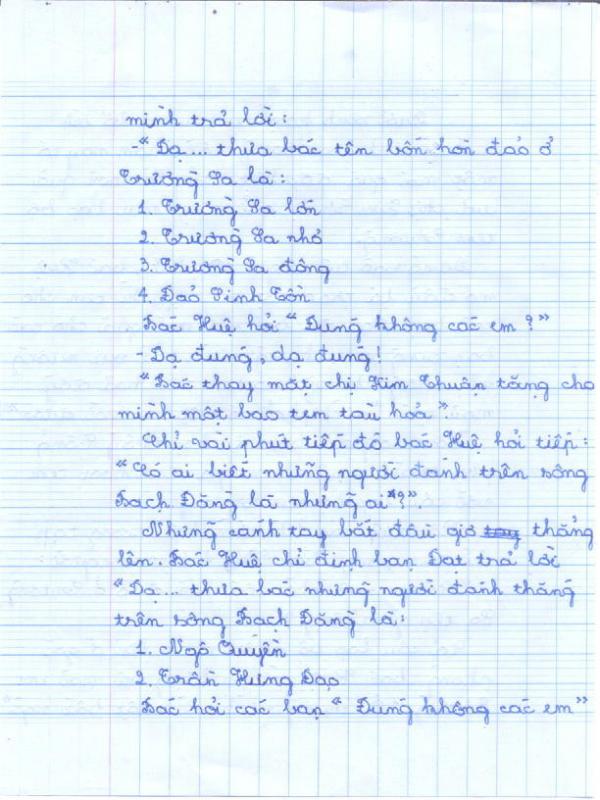 mình trả lời:
-"Dạ... thưa bác tên bốn hòn đảo ở
Trường Sa là:
1. Trường Sa lớn
2. Trường Sa nhỏ
3. Trường Sa đông
4. Đảo Sinh Tồn
Bác Huệ hỏi "Đúng không các em?"
- Dạ đúng, dạ đúng!
"Bác thay mặt chị Kim Thuận tặng cho
mình một bao tem tàu hoả".
Chỉ vài phút tiếp đó bác Huệ hỏi tiếp:
"Có ai biết những người đánh trên sông
Bạch Đằng là những ai"?".
Những cánh tay bắt đầu giơ tay thẳng
lên. Bác Huệ chỉ định bạn Đạt trả lời
"Dạ... thưa bác những người đánh thắng
trên sông Bạch Đằng là:
1. Ngô Quyền
2. Trần Hưng Đạo
Bác hỏi các bạn "Đúng không các em"